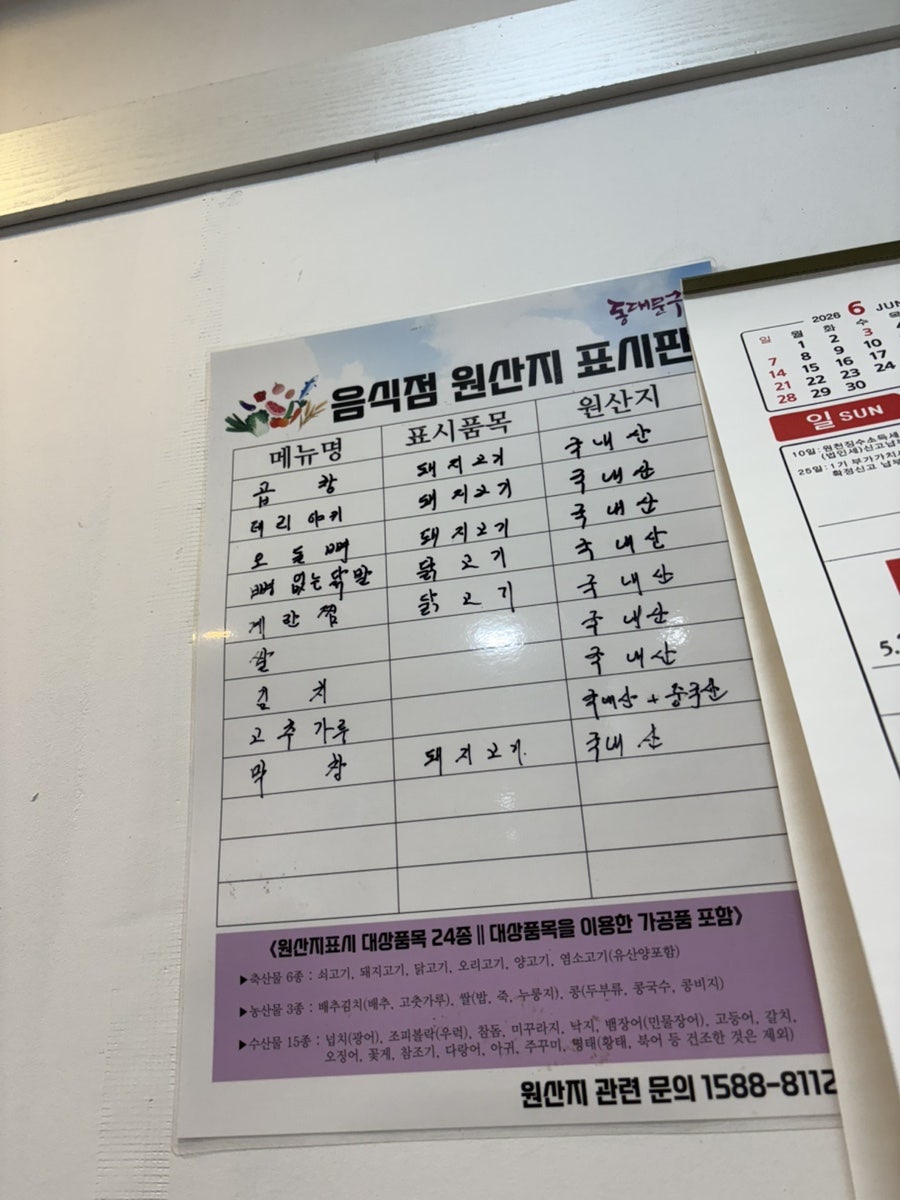 동대문구
음식점 원산지 표시판
메뉴명 표시품목 원산지
곱창 돼지고기 국내산
테리야키 돼지고기 국내산
오돌뼈 돼지고기 국내산
뼈없는닭발 닭고기 국내산
계란찜 닭고기 국내산
쌀 국내산
김치 국내산
고추가루 국내산+중국산
막창 돼지고기 국내산
《원산지표시 대상품목 24종 || 대상품목을 이용한 가공품 포함》
▶축산물 6종 : 쇠고기, 돼지고기, 닭고기, 오리고기, 양고기, 염소고기(유산양포함)
▶농산물 3종 : 배추김치(배추, 고춧가루), 쌀(밥, 죽, 누룽지), 콩(두부류, 콩국수, 콩비지)
▶수산물 15종 : 넙치(광어), 조피볼락(우럭), 참돔, 미꾸라지, 낙지, 뱀장어(민물장어), 고등어, 갈치,
오징어, 꽃게, 참조기, 다랑어, 아귀, 주꾸미, 명태(황태, 북어 등 건조한 것은 제외)
원산지 관련 문의 1588-8112
2026 6 JUN
일 월 화 수 목
1 2 3
7 8 9 10
14 15 16 17
21 22 23 24
28 29 30
일 SUN
10일 : 원천징수소득세
(법인세)신고납
25일 : 1기 부가가치세
확정신고 납부
5.